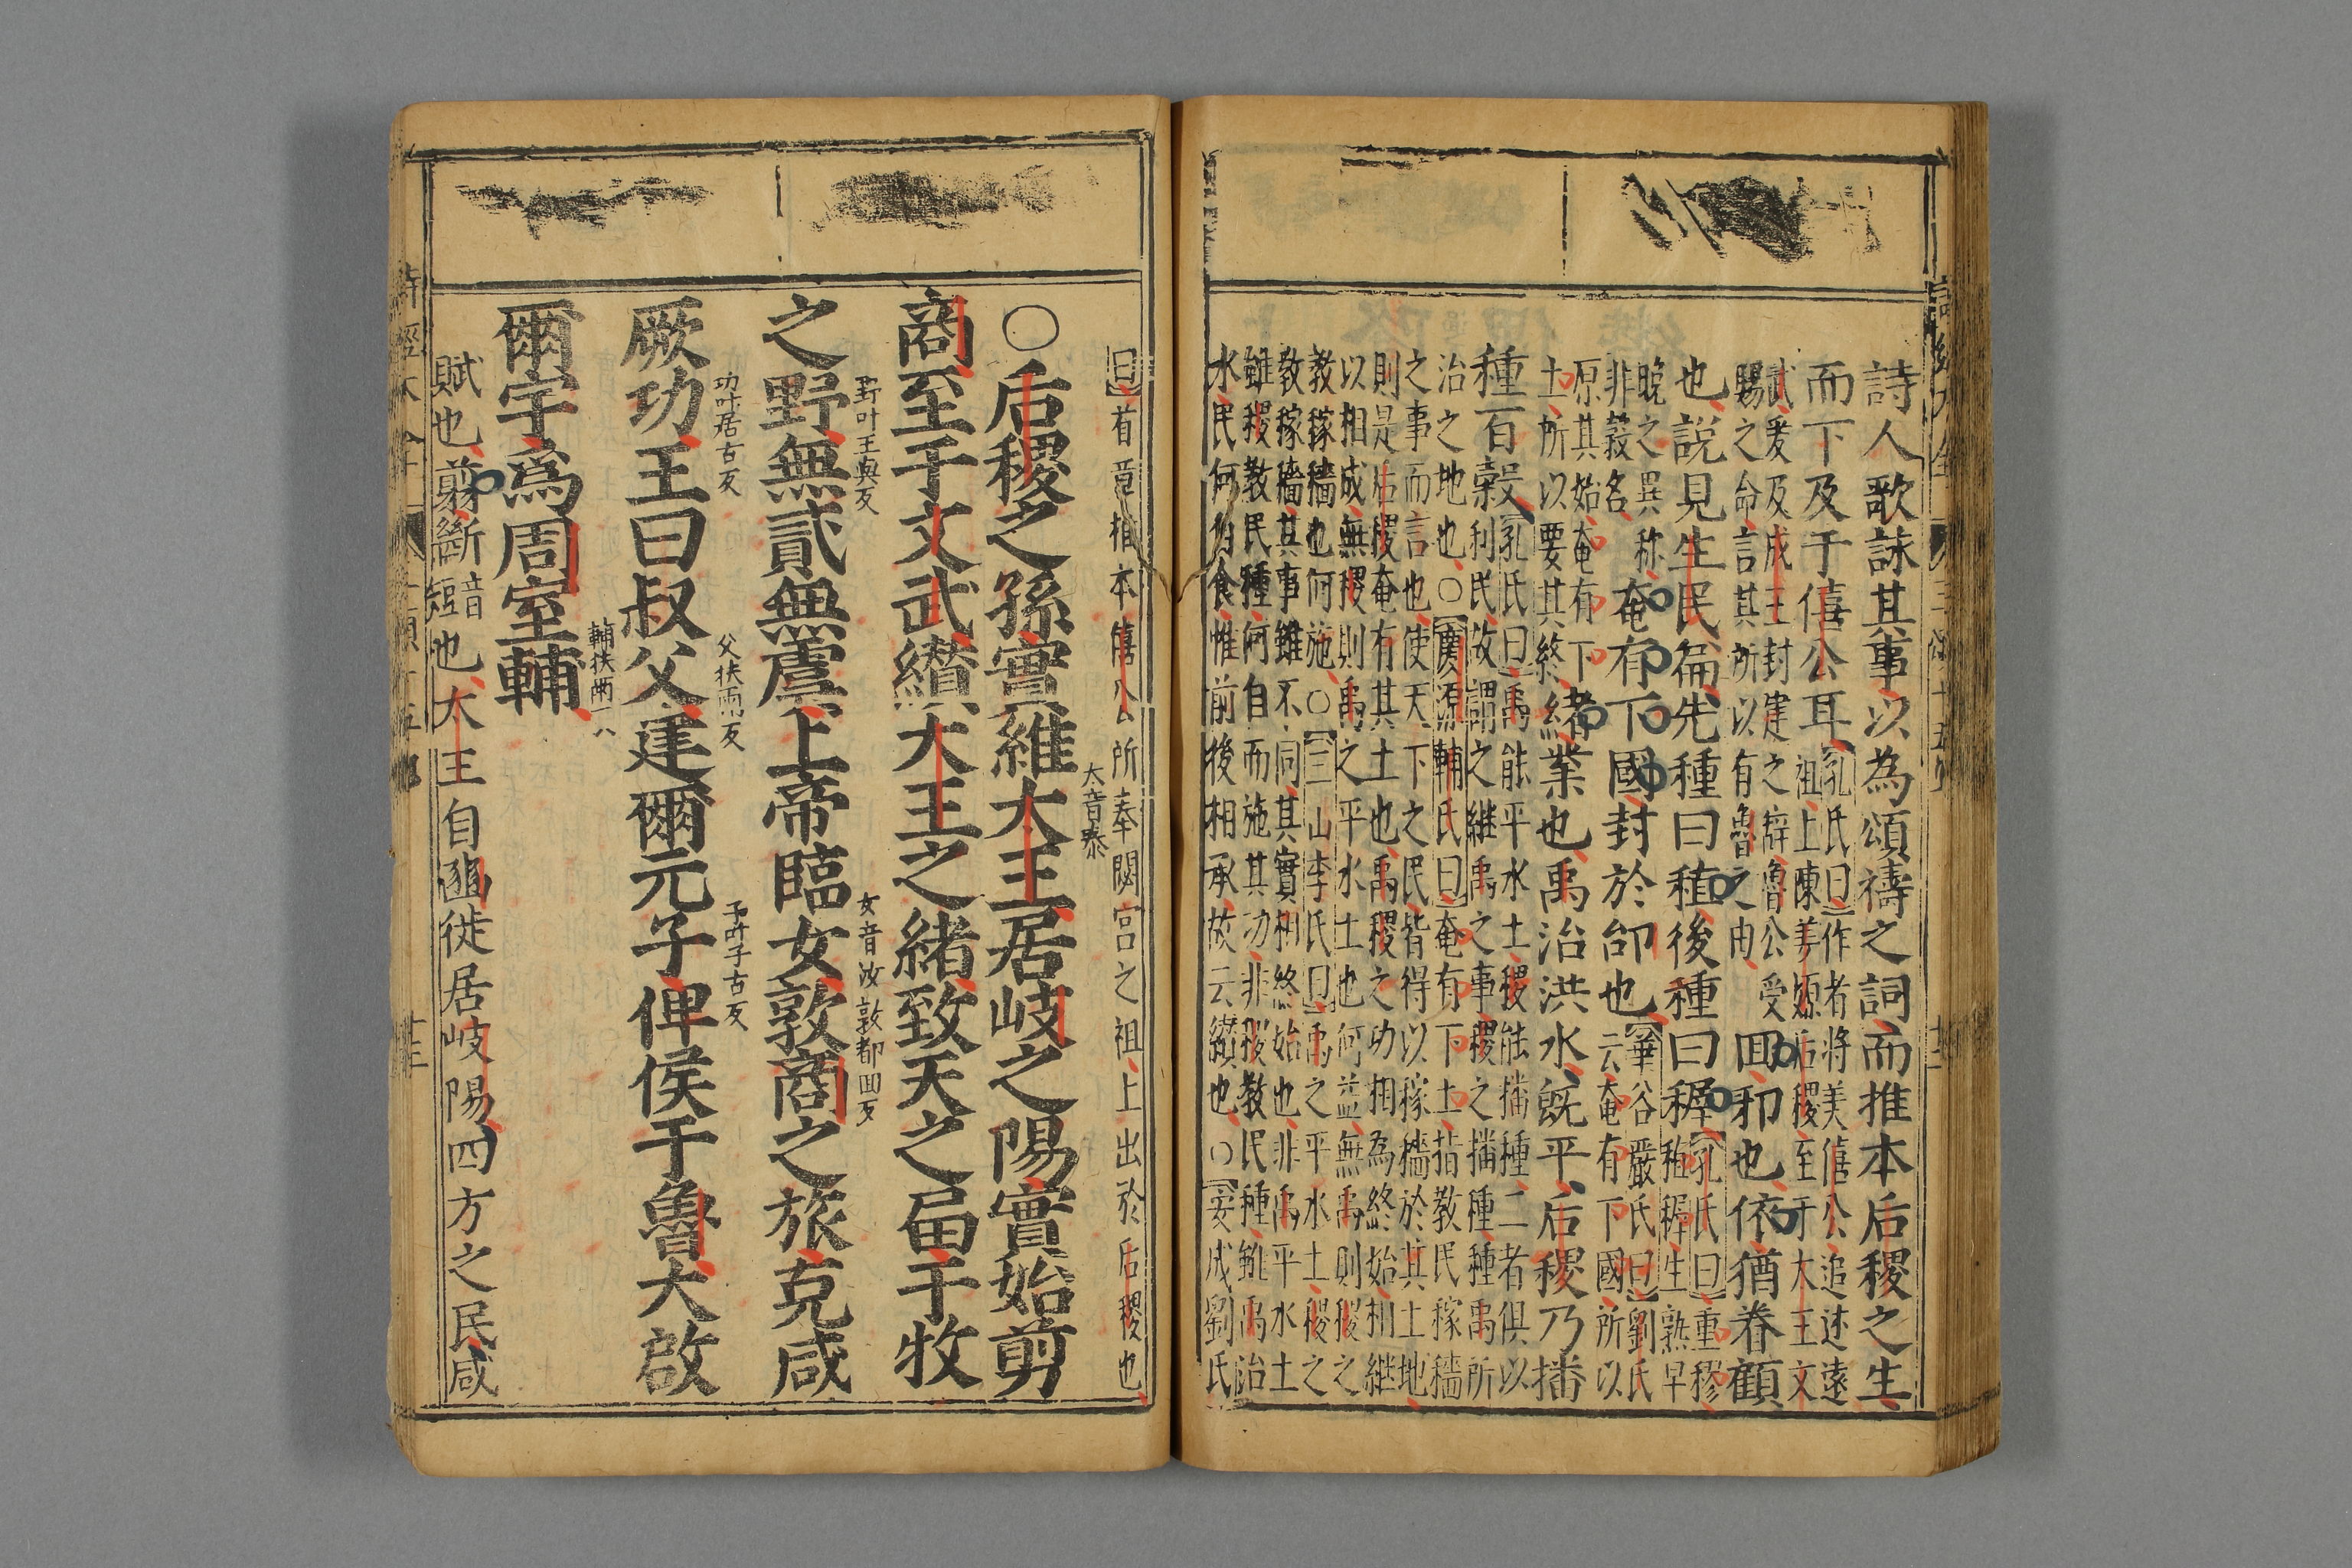 詩人歌詠其事以為頌禱之詞而推本后稷之生
而下及于僖公耳
孔氏曰作者將美僖公追述遠
祖上陳姜嫄后稷至于大王文
武爰及成王封建之辞魯公受
賜之命言其所以有魯之由
回邪也依猶眷顧
也說見生民篇先種曰稙後種曰穉
孔氏曰重穋
稙穉生熟早
晚之異称
非穀名
奄有下國封於邰也
華谷嚴氏曰劉氏
云奄有下國所以
原其始奄有下
土所以要其終
緒業也禹治洪水既平后稷乃播
種百穀
孔氏曰禹能平水土稷能播種二者俱以
利民故謂之継禹之事稷之播種種禹所
治之地也○慶源輔氏曰奄有下土指教民稼穡
之事而言也使天下之民皆得以稼穡於其土地
則是后稷奄有其土也禹稷之功相為終始相継
以相成無稷則禹之平水土也何益無禹則稷之
教稼穡也何施○三山李氏曰禹之平水土稷之
教稼穡其事雖不同其實相終始也非禹平水土
雖稷教民種何自而施其功非稷教民種雖禹治
水民何为食惟前後相承故云纘也○安成劉氏
曰首章推本僖公所奉閟宮之祖上出於后稷也
○后稷之孫實維大王居岐之陽實始剪
大音泰
商至于文武纘大王之緒致天之屆于牧
之野無貳無虞上帝臨女敦商之旅克咸
野叶王與反
女音汝敦都囬反
厥功王曰叔父建爾元子俾侯于魯大啟
功叶居古反
父扶雨反
子叶子古反
爾宇為周室輔
輔扶雨
賦也翦斷
音短
也大王自豳徙居岐陽四方之民咸